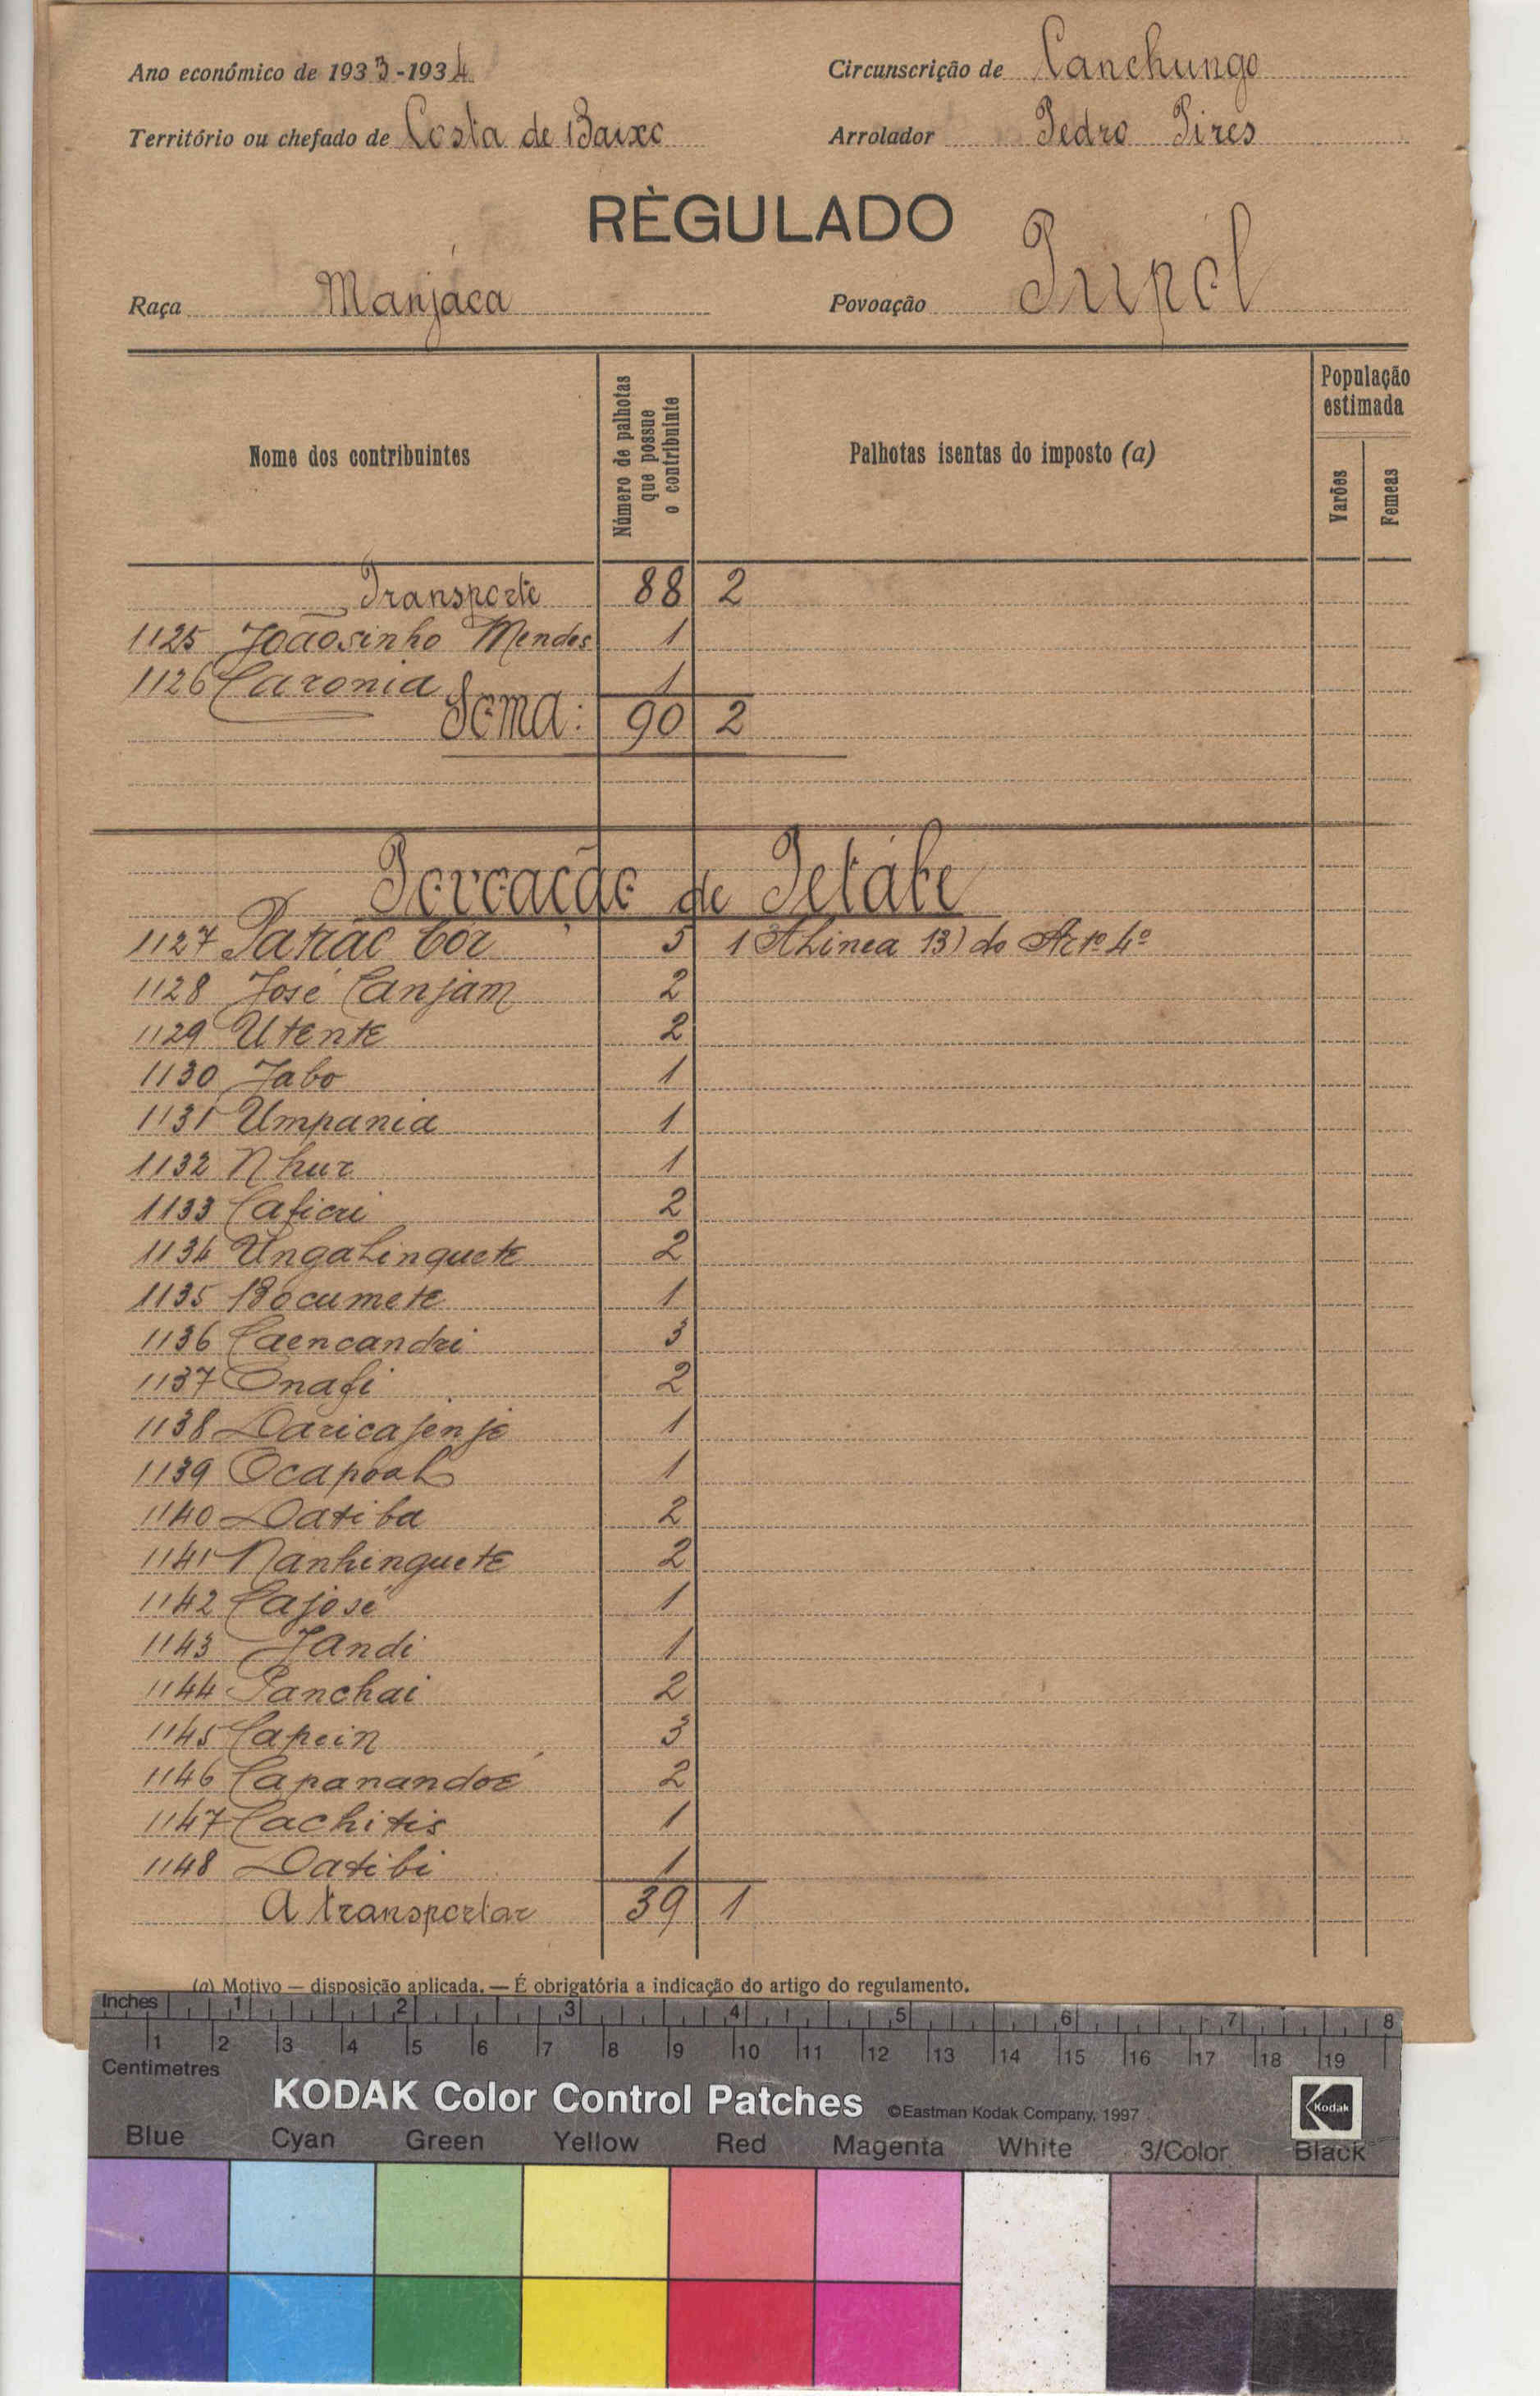 Ano económico de 1933-1934
Circunscrição de Canchungo
Território ou chefado de Costa de Baixo
Arrolador Pedro Pires
RÈGULADO
Raça Manjáca
Povoação Pripól
Nome dos contribuintes
Número de palhotas que possue o contribuinte
Palhotas isentas do imposto (a)
População estimada
Varões
Femeas
Transporte 88 2
1125 Joãosinho Mendes 1
1126 Caronia 1
Soma: 90 2
Povoação de Petábe
1127 Patrác Cór 5 1 Alinea B) do Artº 4º
1128 José Canjam 2
1129 Utente 2
1130 Jabo 1
1131 Umpania 1
1132 Nhur 1
1133 Caficri 2
1134 Ungalinquete 2
1135 Bocumete 1
1136 Caencandri 3
1137 Onafi 2
1138 Daricajenje 1
1139 Ocapoal 1
1140 Datiba 2
1141 Nanhinguete 2
1142 Cajosé 1
1143 Jandi 1
1144 Panchai 2
1145 Capein 3
1146 Capanandoé 2
1147 Cachitis 1
1148 Datibi 1
A transportar 39 1
(a) Motivo — disposição aplicada. — É obrigatória a indicação do artigo do regulamento.
Inches 1 2 3 4 5 6 7 8
1 2 3 4 5 6 7 8 9 10 11 12 13 14 15 16 17 18 19
Centimetres
KODAK Color Control Patches ©Eastman Kodak Company, 1997 Kodak
Blue Cyan Green Yellow Red Magenta White 3/Color Black